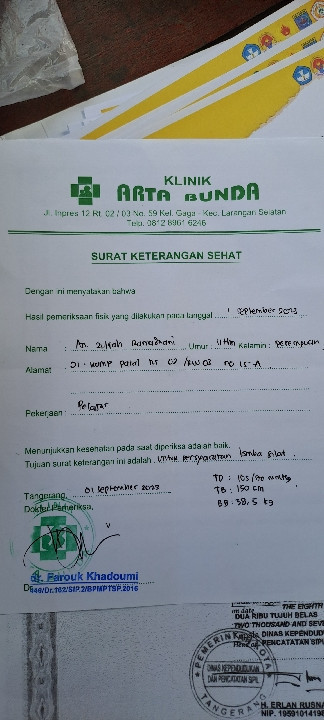 KLINIK
ARTA BUNDA
Jl. Inpres 12 Rt. 02 / 03 No. 59 Kel. Gaga - Kec. Larangan Selatan
Telp. 0812 8961 6246
SURAT KETERANGAN SEHAT
Dengan ini menyatakan bahwa
Hasil pemeriksaan fisik yang dilakukan pada tanggal 1 September 2023
Nama : An. Ramadhani Umur : 11 thn Kelamin : perempuan
Alamat : komp RT 02 /RW 03 no 15-A
Pekerjaan : Pelajar
Menunjukkan kesehatan pada saat diperiksa adalah baik.
Tujuan surat keterangan ini adalah : Untuk Persyaratan lomba silat.
Tangerang, 01 September 2023
Dokter Pemeriksa,
TD : 105/70 mmHg
TB : 150 cm
BB : 38,5 kg
dr. Farouk Khadoumi
446/Dr.162/SIP.2/BPMPTSP.2016
THE EIGHTH
DUA RIBU TUJUH BELAS
TWO THOUSAND AND SEVE
PENCATATAN SIPIL
PEMERINTAH KOTA
DINAS KEPENDUDUKAN
DAN PENCATATAN SIPIL
TANGERANG
H. ERLAN RUSNA
NIP. 1959101419